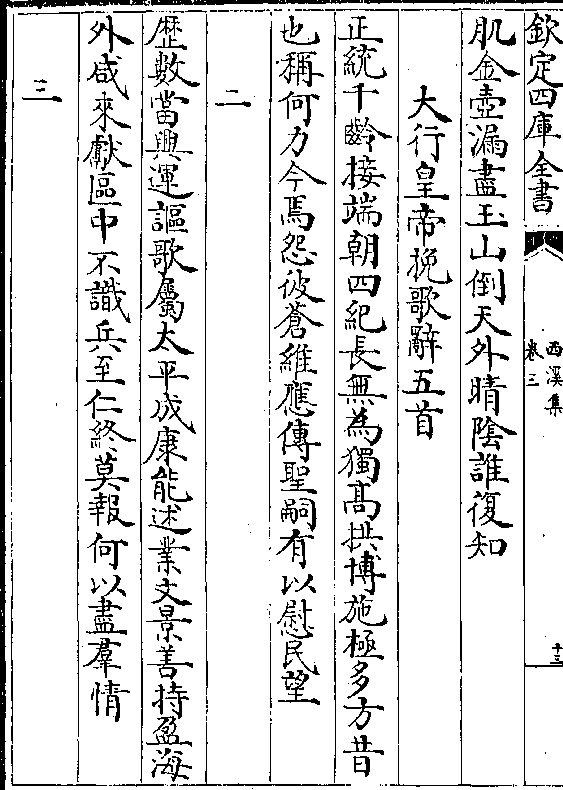 欽定四庫全書
西溪集
卷三
十三
肌金壺漏盡玉山倒天外晴陰誰復知
大行皇帝挽歌辭五首
正統千齡接端朝四紀長無為獨髙拱博施極多方昔
也稱何力今焉怨彼蒼維應傳聖嗣有以慰民望
二
歴數當興運謳歌屬太平成康能述業文景善持盈海
外咸來獻區中不識兵至仁終莫報何以盡羣情
三